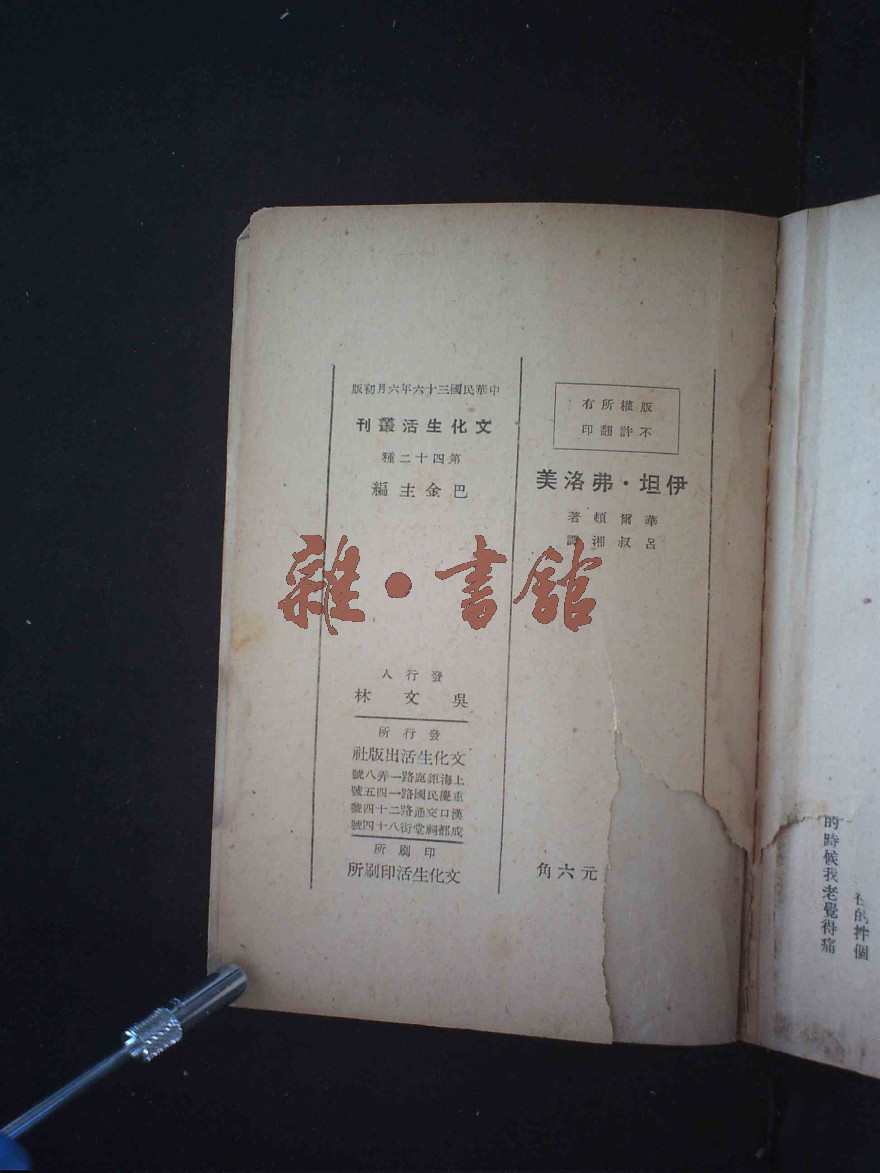 版權所有
不許翻印
伊坦·弗洛美
華爾頓著
呂叔湘譯
元六角
中華民國三十六年六月初版
文化生活叢刊
第四十二種
巴金主編
發行人
吳文林
發行所
文化生活出版社
上海鉅鹿路一弄八號
重慶民國路一四五號
漢口交通路二十四號
成都祠堂街八十四號
印刷所
文化生活印刷所
雜·書館
的件個
的時候我老覺得痛